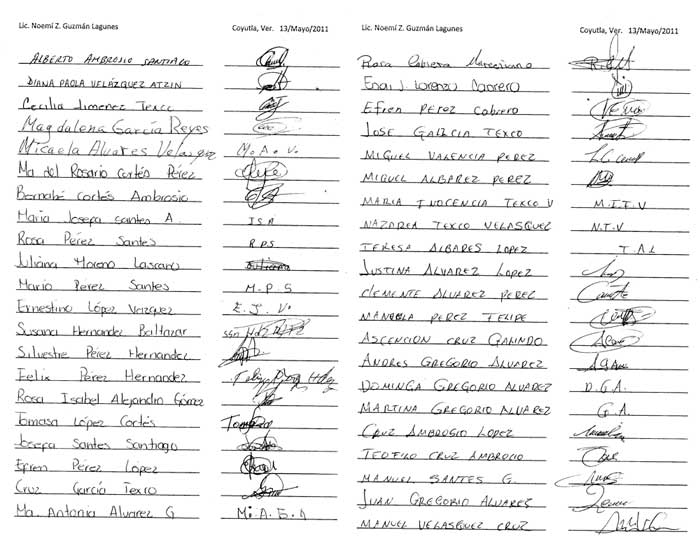 Lic. Noemí Z. Guzmán Lagunes Coyutla, Ver. 13/Mayo/2011
ALBERTO AMBROSIO SANTIAGO
DIANA PAOLA VELÁZQUEZ ATZIN
Cecilia Jimenez Texco
Magdalena García Reyes
Micaela Alvares Velazquez M. A. V.
Ma del Rosario Cortés Pérez
Bernabé Cortés Ambrosio
Maria Josepa santes A J S A
Rosa Pérez Santes R P S
Juliana Moreno Lascano Juliana
Mario Pérez Santes M - P S
Ernestina López Vazquez E. J. V.
Susana Hernandez Baltazar
Silvestre Pérez Hernandez
Felix Pérez Hernandez
Rosa Isabel Alejandro Gómez
Tomasa López Cortés
Josepa Santes Santiago
Efren Pérez Lopez
Cruz García Texco
Ma. Antonia Alvarez G
Lic. Noemí Z. Guzmán Lagunes Coyutla, Ver. 13/Mayo/2011
Rosa Cabrera Marcesiano
Enai J. Lorenzo Cabrero
Efren Pérez Cabrero
JOSE GALICIA TEXCO
MIGUEL VALENCIA PEREZ
MIGUEL ALBAREZ PEREZ
MARIA INOCENCIA TEXCO V M. I T. V
NAZAREA TEXCO VELASQUEZ N. T. V
TERESA ALBARES LOPEZ T. A L
JUSTINA ALVAREZ LOPEZ
CLEMENTE ALVAREZ PEREZ
MANUELA PEREZ FELIPE
ASCENCION CRUZ GALINDO
ANDRES GREGORIO ALVAREZ
DOMINGA GREGORIO ALVAREZ D. G A.
MARTINA GREGORIO ALVAREZ G. A.
CRUZ AMBROSIO LOPEZ
TEOFILO CRUZ AMBROCIO
MANUEL SANTES G.
JUAN GREGORIO ALVARES
MANUEL VELASQUEZ CRUZ